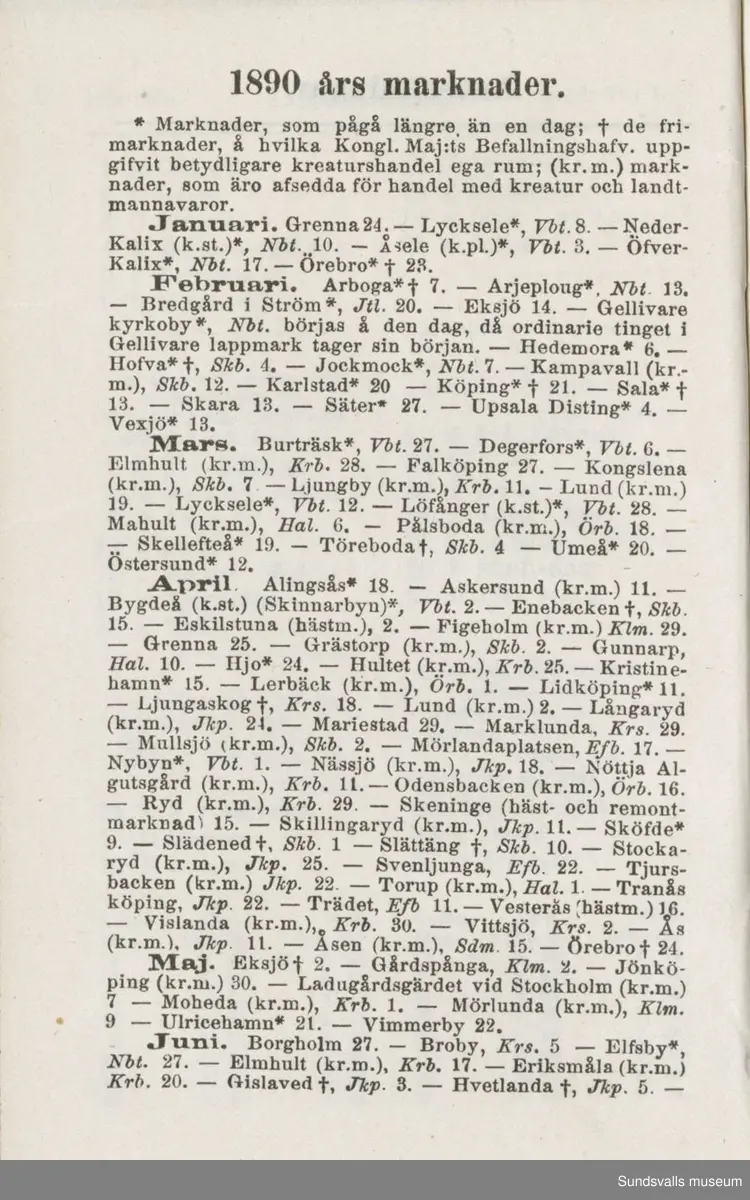 1890 års marknader.
* Marknader, som pågå längre än en dag; † de fri-
marknader, å hvilka Kongl. Maj:ts Befallningshafv. upp-
gifvit betydligare kreaturshandel ega rum; (kr.m.) mark-
nader, som äro afsedda för handel med kreatur och landt-
mannavaror.
Januari. Grenna 24. — Lycksele*, Vbt. 8. — Neder-
Kalix (k.st.)*, Nbt. 10. — Åsele (k.pl.)*, Vbt. 3. — Öfver-
Kalix*, Nbt. 17. — Örebro* † 23.
Februari. Arboga* † 7. — Arjeploug*, Nbt. 13.
— Bredgård i Ström*, Jtl. 20. — Eksjö 14. — Gellivare
kyrkoby*, Nbt. börjas å den dag, då ordinarie tinget i
Gellivare lappmark tager sin början. — Hedemora* 6. —
Hofva* †, Skb. 4. — Jockmock*, Nbt. 7. — Kampavall (kr.-
m.), Skb. 12. — Karlstad* 20 — Köping* † 21. — Sala* †
13. — Skara 13. — Säter* 27. — Upsala Disting* 4. —
Vexjö* 13.
Mars. Burträsk*, Vbt. 27. — Degerfors*, Vbt. 6. —
Elmhult (kr.m.), Krb. 28. — Falköping 27. — Kongslena
(kr.m.), Skb. 7. — Ljungby (kr.m.), Krb. 11. — Lund (kr.m.)
19. — Lycksele*, Vbt. 12. — Löfånger (k.st.)*, Vbt. 28. —
Mahult (kr.m.), Hal. 6. — Pålsboda (kr.m.), Örb. 18. —
— Skellefteå* 19. — Töreboda †, Skb. 4 — Umeå* 20. —
Östersund* 12.
April. Alingsås* 18. — Askersund (kr.m.) 11. —
Bygdeå (k.st.) (Skinnarbyn)*, Vbt. 2. — Enebacken †, Skb.
15. — Eskilstuna (hästm.), 2. — Figeholm (kr.m.) Klm. 29.
— Grenna 25. — Grästorp (kr.m.), Skb. 2. — Gunnarp,
Hal. 10. — Hjo* 24. — Hultet (kr.m.), Krb. 25. — Kristine-
hamn* 15. — Lerbäck (kr.m.), Örb. 1. — Lidköping* 11.
— Ljungaskog †, Krs. 18. — Lund (kr.m.) 2. — Långaryd
(kr.m.), Jkp. 24. — Mariestad 29. — Marklunda, Krs. 29.
— Mullsjö (kr.m.), Skb. 2. — Mörlandaplatsen, Efb. 17. —
Nybyn*, Vbt. 1. — Nässjö (kr.m.), Jkp. 18. — Nöttja Al-
gutsgård (kr.m.), Krb. 11. — Odensbacken (kr.m.), Örb. 16.
— Ryd (kr.m.), Krb. 29. — Skeninge (häst- och remont-
marknad) 15. — Skillingaryd (kr.m.), Jkp. 11. — Sköfde*
9. — Slädened †, Skb. 1 — Slättäng †, Skb. 10. — Stocka-
ryd (kr.m.), Jkp. 25. — Svenljunga, Efb. 22. — Tjurs-
backen (kr.m.) Jkp. 22. — Torup (kr.m.), Hal. 1. — Tranås
köping, Jkp. 22. — Trädet, Efb 11. — Vesterås (hästm.) 16.
— Vislanda (kr.m.), Krb. 30. — Vittsjö, Krs. 2. — Ås
(kr.m.), Jkp. 11. — Åsen (kr.m.), Sdm. 15. — Örebro † 24.
Maj. Eksjö † 2. — Gårdspånga, Klm. 2. — Jönkö-
ping (kr.m.) 30. — Ladugårdsgärdet vid Stockholm (kr.m.)
7 — Moheda (kr.m.), Krb. 1. — Mörlunda (kr.m.), Klm.
9 — Ulricehamn* 21. — Vimmerby 22.
Juni. Borgholm 27. — Broby, Krs. 5 — Elfsby*,
Nbt. 27. — Elmhult (kr.m.), Krb. 17. — Eriksmåla (kr.m.)
Krb. 20. — Gislaved †, Jkp. 3. — Hvetlanda †, Jkp. 5. —
Sundsvalls museum